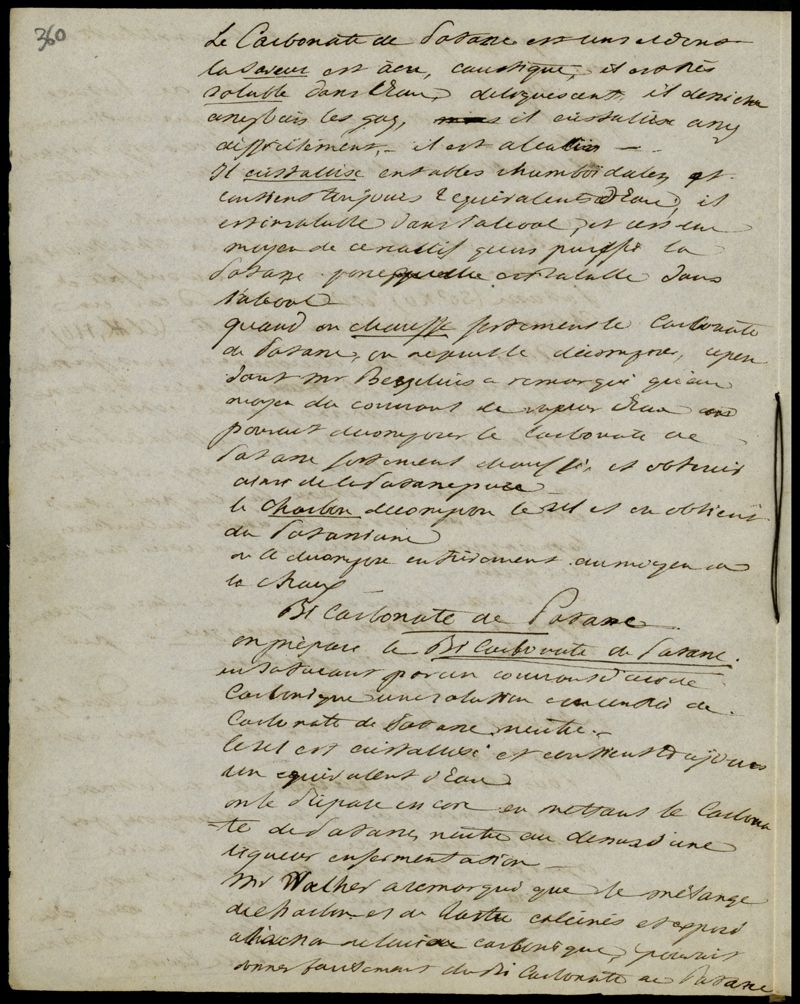 360
Le Carbonate de Potasse est
la saveur est âcre, caustique, il est très
soluble dans l'Eau, deliquescent, il desseche
assez bien les gaz, il cristallise assez
difficilement, il est alcalin —
Il cristallise en tables rhomboidales, et
contient toujours 2 equivalents d'Eau, il
est insoluble dans l'alcool, et c'est un
moyen de ce reactif qu'on purifie la
Potasse est soluble dans
l'alcool
quand on chauffe fortement le Carbonate
de Potasse, on ne peut le décomposer, cepen
dant Mr Berzelius a remarqué qu'au
moyen du courant de vapeur d'Eau on
pouvait decomposer le Carbonate de
Potasse fortement chauffé, et obtenir
ainsi de la Potasse pure
le Charbon decompose le sel et on obtient
du Potassium
on le decompose entièrement au moyen de
la chaux
Bi Carbonate de Potasse
on prépare le Bi Carbonate de Potasse
en saturant par un courant d'acide
Carbonique une solution concentrée de
Carbonate de Potasse neutre. —
le sel est cristallisé et contient toujours
un equivalent d'Eau
on le prépare encore en mettant le Carbona
te de Potasse neutre au dessus d'une
liqueur en fermentation —
Mr Walker a remarqué que le mélange
de charbon et de tartre calcinés et exposé
à l'action de l'acide carbonique, pouvait
donner facilement du Bi Carbonate de Potasse